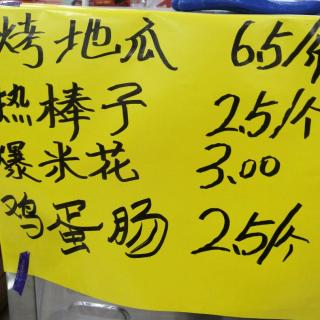 烤地瓜 6.5/个
热棒子 2.5/个
爆米花 3.00
鸡蛋肠 2.5/个